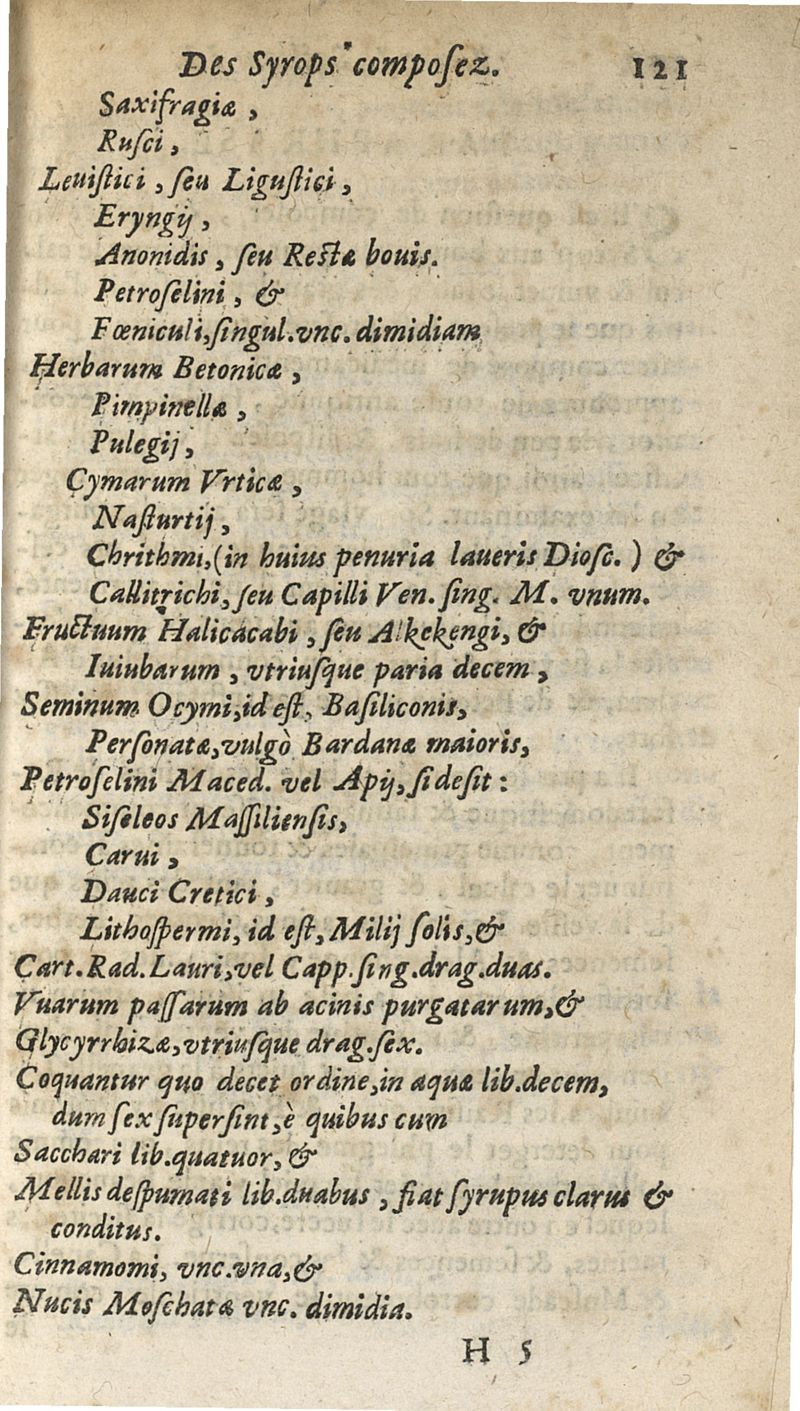 Des Syrops compoſez. 121
Saxifragiæ,
Ruſci,
Leuiſtici, ſeu Liguſtici,
Eryngij,
Anonidis, ſeu Reſtæ bouis.
Petroſelini, &
Fœniculi, ſingul. vnc. dimidiam
Herbarum Betonicæ,
Pimpinellæ,
Pulegij,
Cymarum Vrticæ,
Naſturtij,
Chrithmi, (in huius penuria laueris Dioſc.) &
Callitrichi, ſeu Capilli Ven. ſing. M. vnum.
Fructuum Halicacabi, ſeu Alkekengi, &
Iuiubarum, vtriuſque paria decem,
Seminum Ocymi, id eſt, Baſiliconis,
Perſonatæ, vulgò Bardanæ maioris,
Petroſelini Maced. vel Apij, ſi deſit:
Siſeleos Maſſilienſis,
Carui,
Dauci Cretici,
Lithoſpermi, id eſt, Milij ſolis, &
Cart. Rad. Lauri, vel Capp. ſing. drag. duas.
Vuarum paſſarum ab acinis purgatarum, &
Glycyrrhizæ, vtriuſque drag. ſex.
Coquantur quo decet ordine, in aquæ lib. decem,
dum ſex ſuperſint, è quibus cum
Sacchari lib. quatuor, &
Mellis deſpumati lib. duabus, fiat ſyrupus clarus &
conditus.
Cinnamomi, vnc. vna, &
Nucis Moſchatæ vnc. dimidia.
H 5